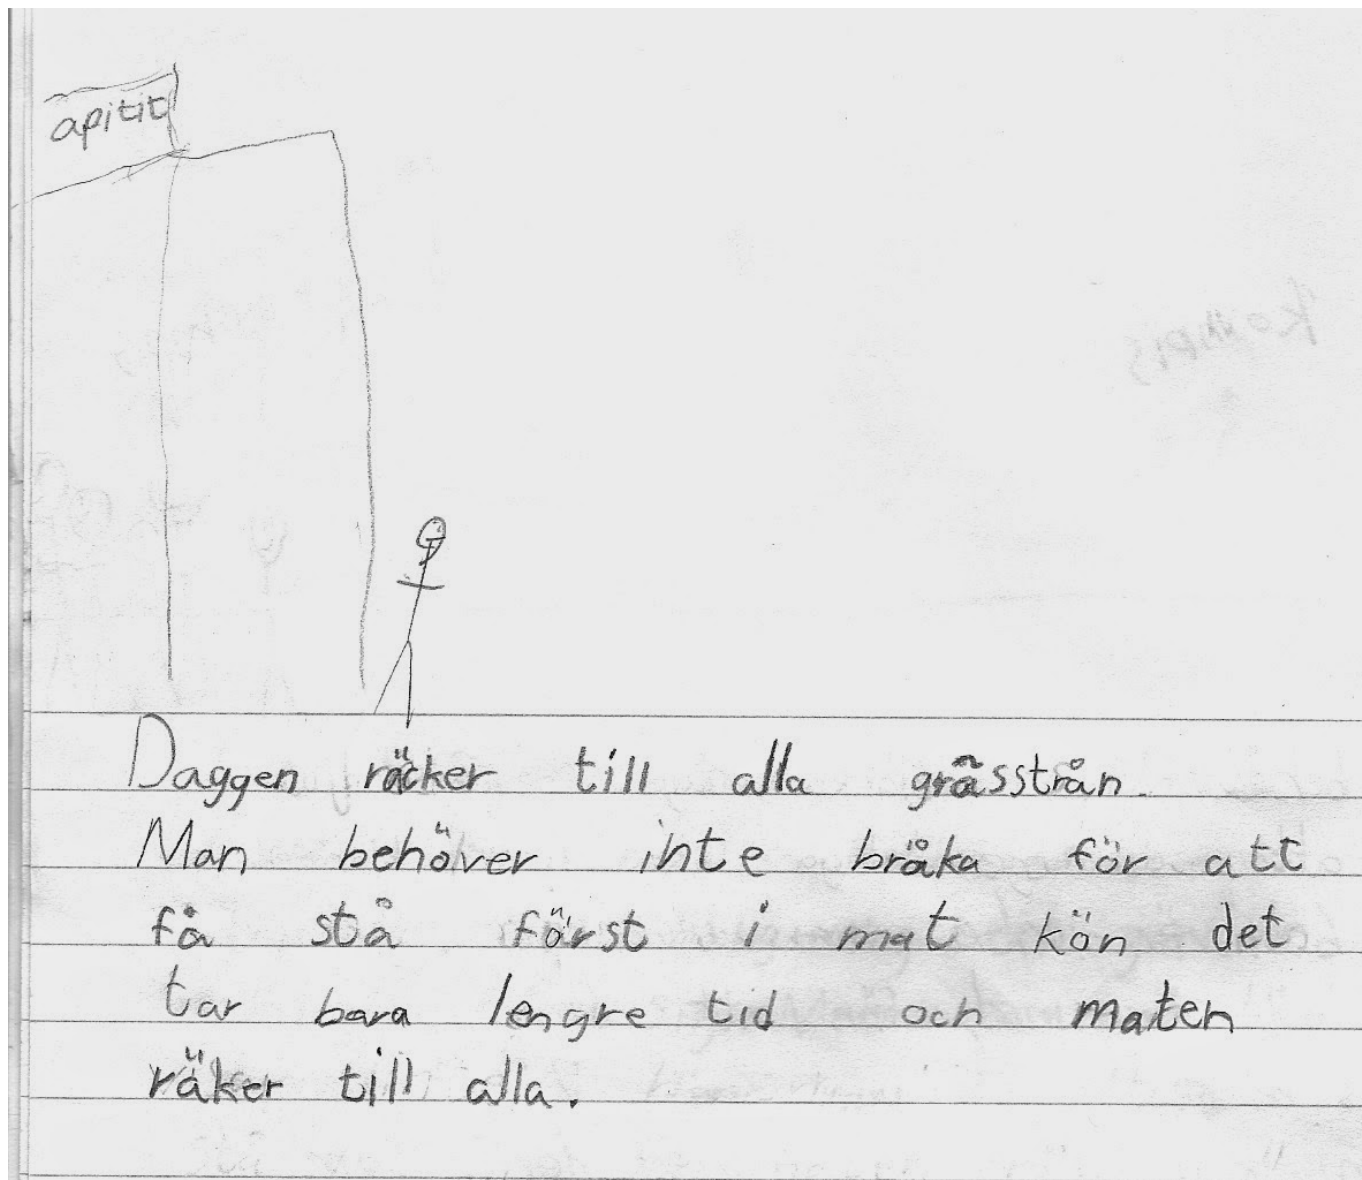 apitit
Daggen räcker till alla grässtrån.
Man behöver inte bråka för att
få stå först i mat kön det
tar bara lengre tid och maten
räker till alla.